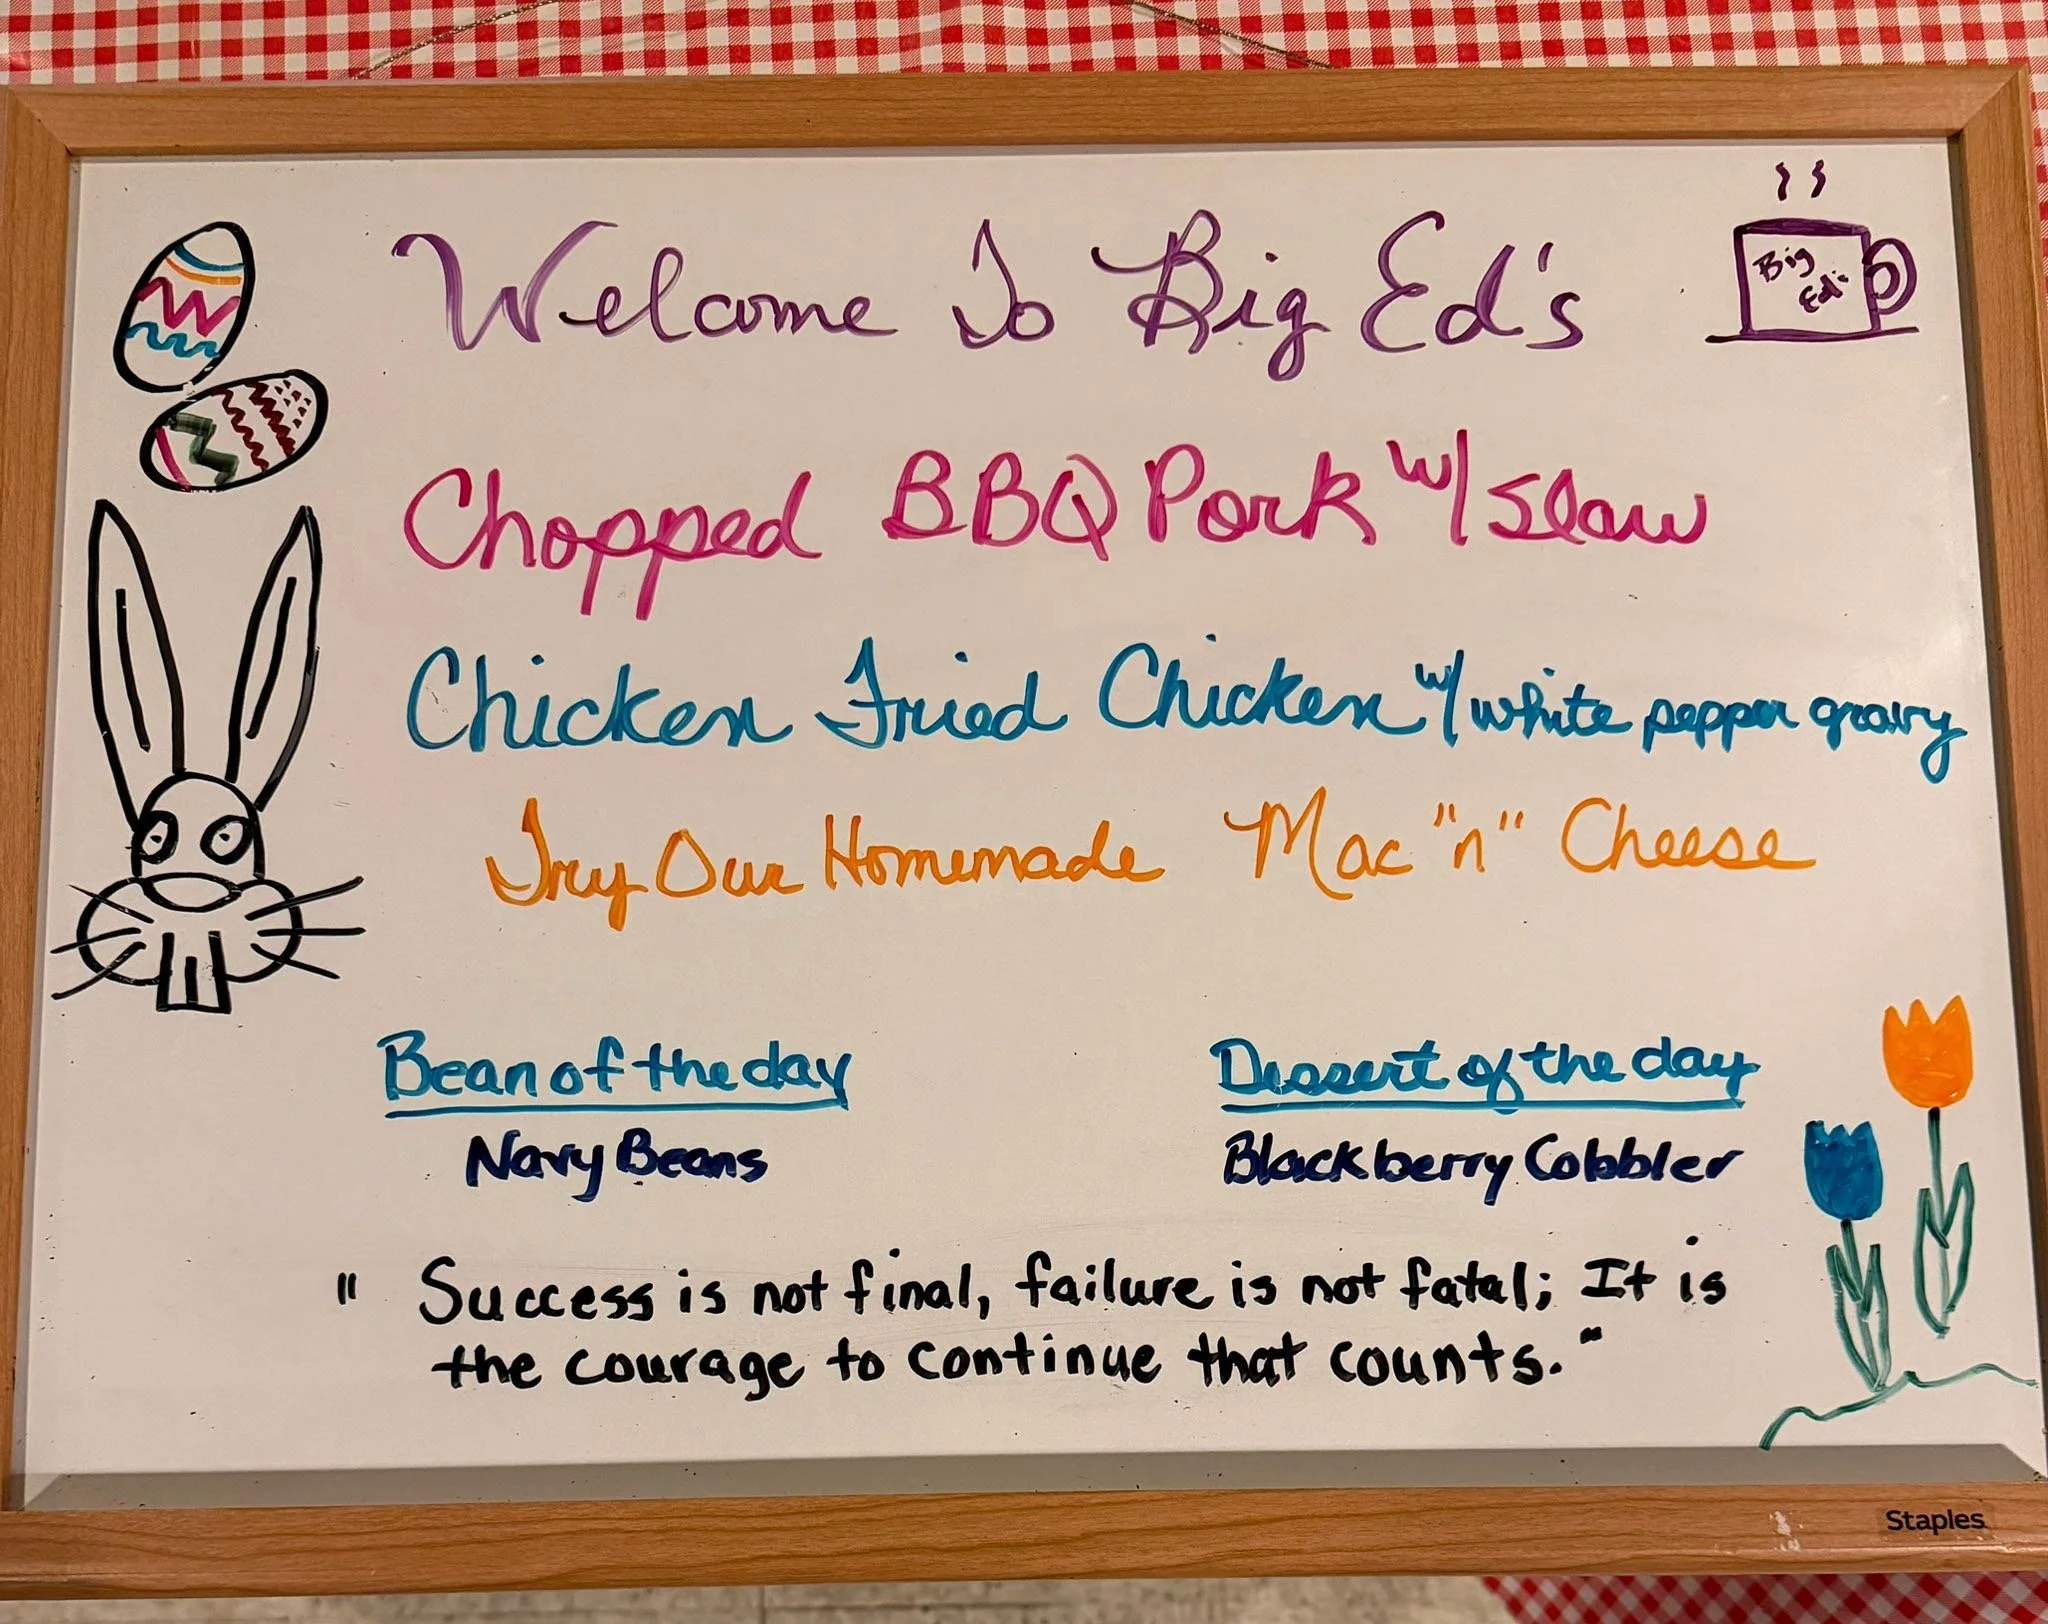 Welcome To Big Ed's
Big
Ed's
Chopped BBQ Pork w/ Slaw
Chicken Fried Chicken w/ white pepper gravy
Try Our Homemade Mac "n" Cheese
Bean of the day
Navy Beans
Dessert of the day
Blackberry Cobbler
" Success is not final, failure is not fatal; It is
the courage to continue that counts."
Staples